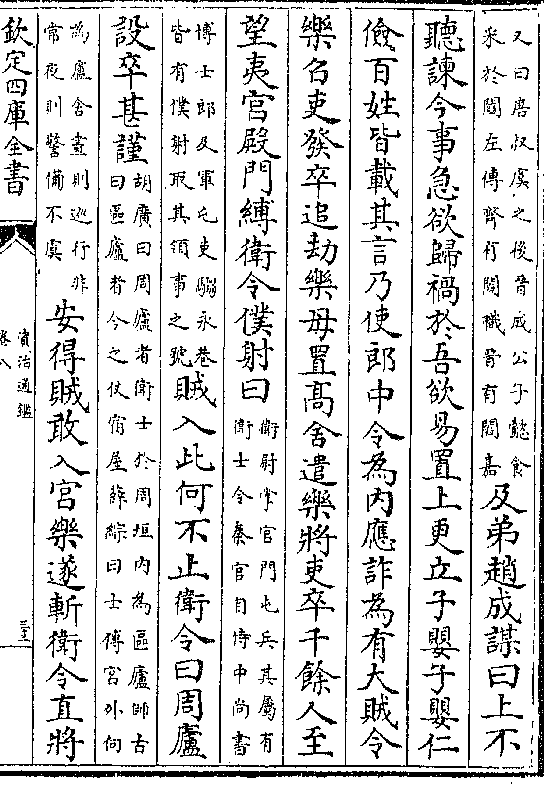 又曰唐叔虞之後晉成公子懿食
采於閻左傳齊有閻職晉有閻嘉
及弟趙成謀曰上不
聽諫今事急欲歸禍於吾欲易置上更立子嬰子嬰仁
儉百姓皆載其言乃使郎中令為内應詐為有大賊令
樂召吏發卒追劫樂母置高舍遣樂將吏卒千餘人至
望夷宫殿門縛衛令僕射曰
衛尉掌宫門屯兵其屬有
衛士令秦官自侍中尚書
博士郎及軍屯吏騶永巷
皆有僕射取其領事之號
賊入此何不止衛令曰周廬
設卒甚謹
胡廣曰周廬者衛士於周垣内為區廬師古
曰區廬者今之仗宿屋薛綜曰士傅宫外向
為廬舍晝則巡行非
常夜則警備不虞
安得賊敢入宫樂遂斬衛令直將
欽定四庫全書
資治通鑑
卷八